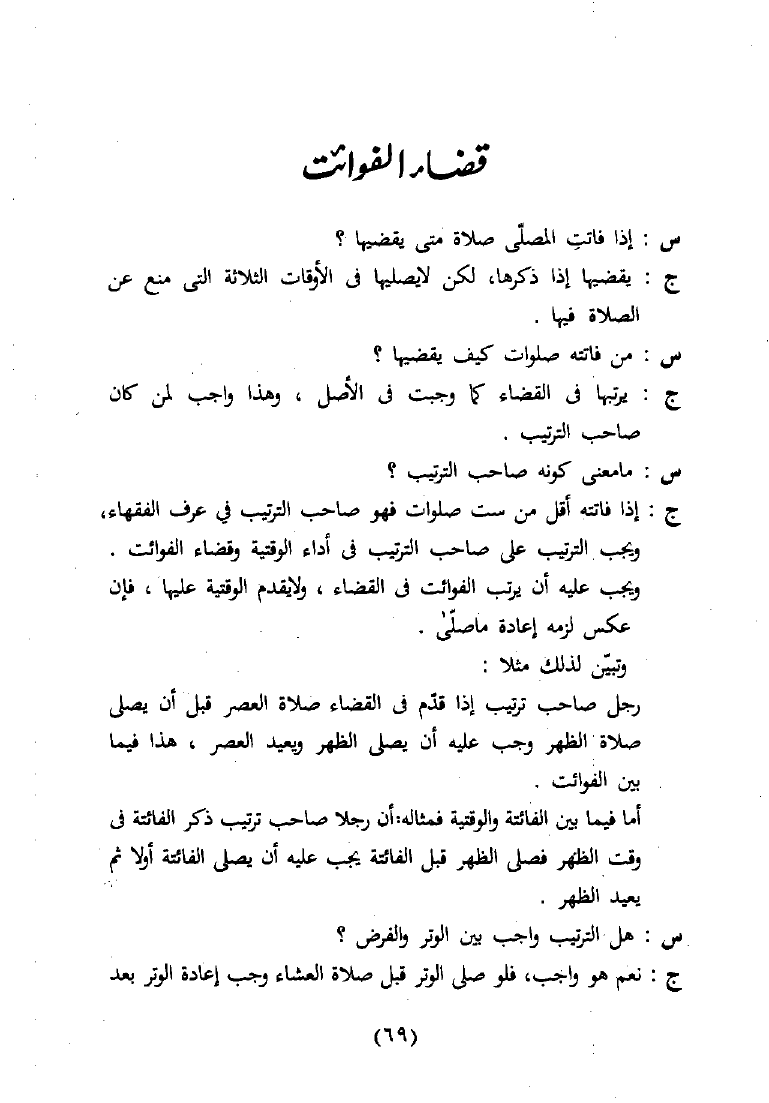 قضاء الفوائت
س : إذا فاتتِ المصلّى صلاة متى يقضيها ؟
ج : يقضيها إذا ذكرها، لكن لايصليها فى الأوقات الثلاثة التى منع عن
الصلاة فيها .
س : من فاتته صلوات كيف يقضيها ؟
ج : يرتبها فى القضاء كما وجبت فى الأصل ، وهذا واجب لمن كان
صاحب الترتيب .
س : مامعنى كونه صاحب الترتيب ؟
ج : إذا فاتته أقل من ست صلوات فهو صاحب الترتيب في عرف الفقهاء،
ويجب الترتيب على صاحب الترتيب فى أداء الوقتية وقضاء الفوائت .
ويجب عليه أن يرتب الفوائت فى القضاء ، ولايقدم الوقتية عليها ، فإن
عكس لزمه إعادة ماصلّىٰ .
وتبيّن لذلك مثلا :
رجل صاحب ترتيب إذا قدّم فى القضاء صلاة العصر قبل أن يصلى
صلاة الظهر وجب عليه أن يصلى الظهر ويعيد العصر ، هذا فيما
بين الفوائت .
أما فيما بين الفائتة والوقتية فمثاله:أن رجلا صاحب ترتيب ذكر الفائتة فى
وقت الظهر فصلى الظهر قبل الفائتة يجب عليه أن يصلى الفائتة أولا ثم
يعيد الظهر .
س : هل الترتيب واجب بين الوتر والفرض ؟
ج : نعم هو واجب، فلو صلى الوتر قبل صلاة العشاء وجب إعادة الوتر بعد
(٦٩)